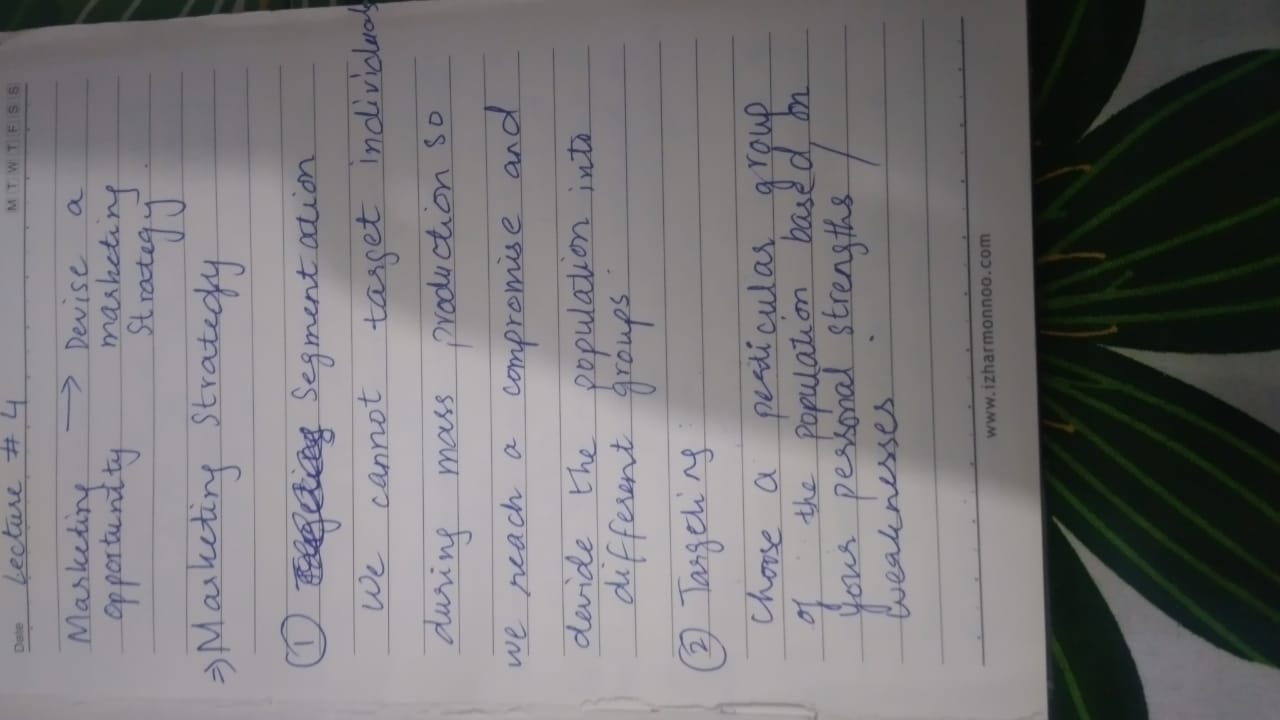 Date Lecture # 4 M T W T F S S
Marketing → Devise a
opportunity marketing
Strategy.
⇒ Marketing Strategy
① Segmentation
We cannot target individuals
during mass production so
we reach a compromise and
devide the population into
different groups
② Targeting:
Choose a perticular group
of the population based on
your personal strengths /
weaknesses.
www.izharmonnoo.com